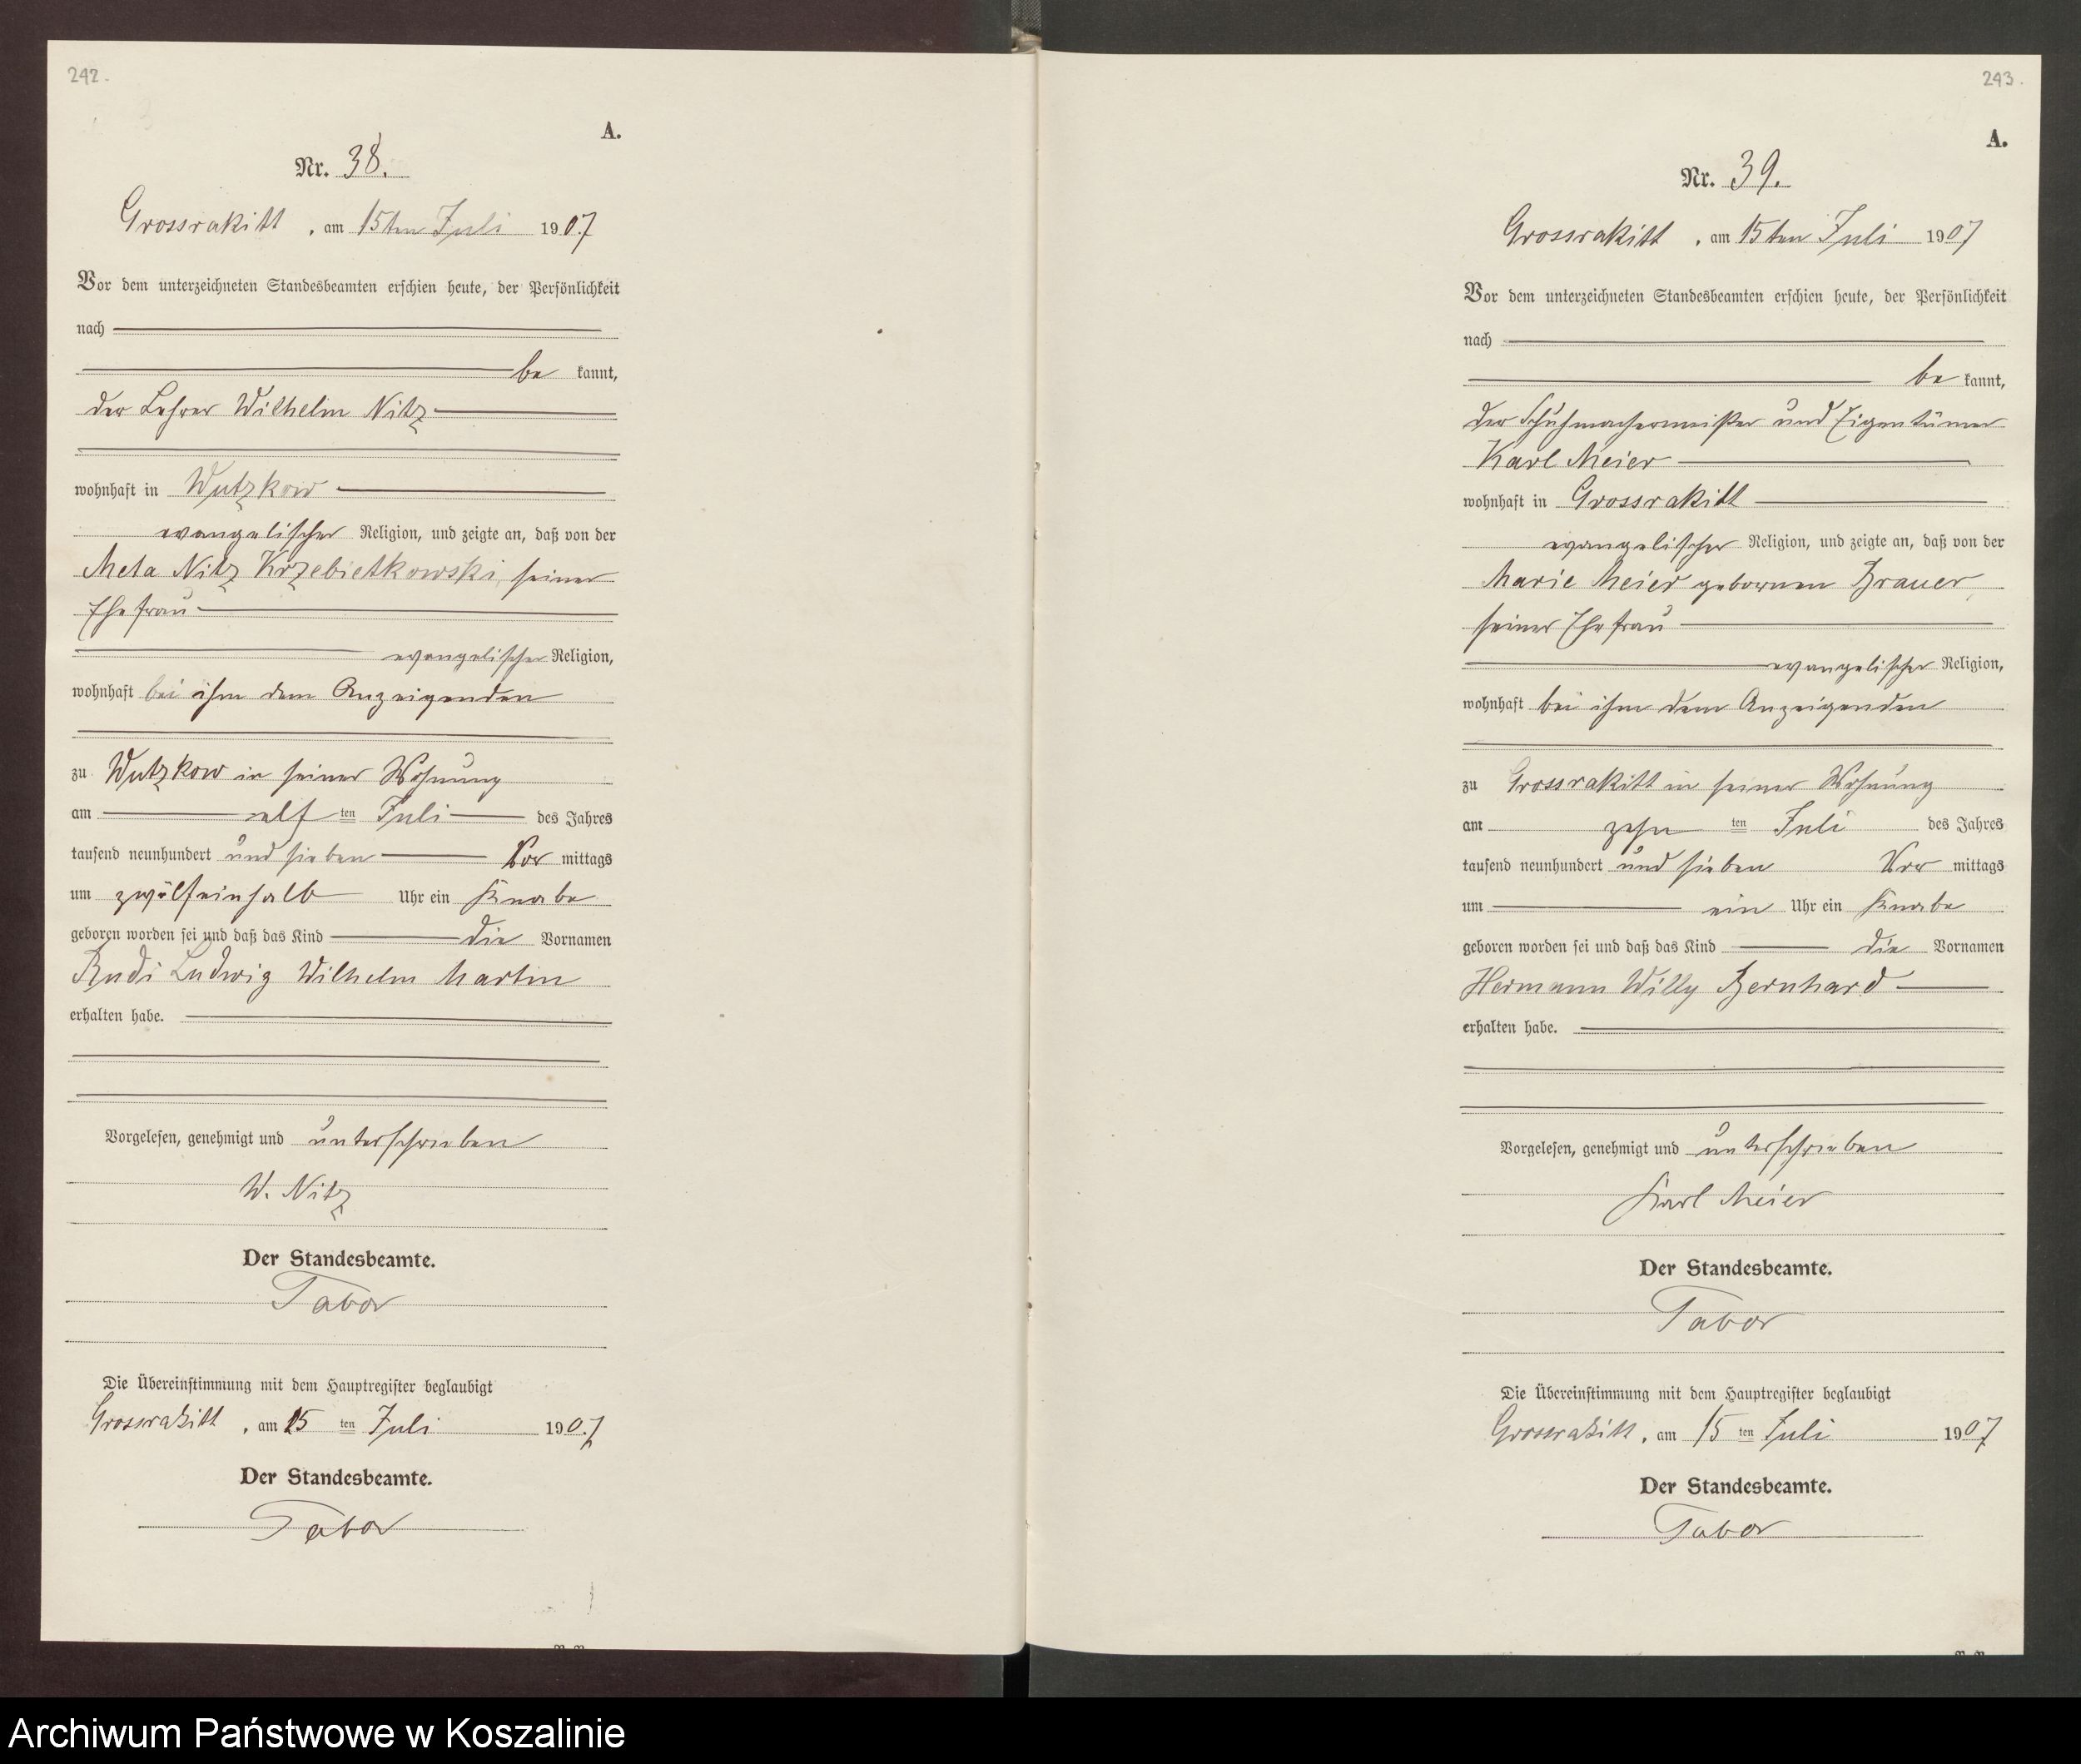 242.
A.
Nr. 38.
Grossrakitt, am 15ten Juli 1907
Vor dem unterzeichneten Standesbeamten erschien heute, der Persönlichkeit
nach
be kannt,
der Lehrer Wilhelm Nitz
wohnhaft in Wutzkow
evangelischer Religion, und zeigte an, daß von der
Meta Nitz Krzebietkowski, seiner
Ehefrau
evangelischer Religion,
wohnhaft bei ihm dem Anzeigenden
zu Wutzkow in seiner Wohnung
am elf ten Juli des Jahres
tausend neunhundert und sieben Vor mittags
um zwölfeinhalb Uhr ein Knabe
geboren worden sei und daß das Kind die Vornamen
Rudi Ludwig Wilhelm Martin
erhalten habe.
Vorgelesen, genehmigt und unterschrieben
W. Nitz
Der Standesbeamte.
Tabor
Die Übereinstimmung mit dem Hauptregister beglaubigt
Grossrakitt, am 15 ten Juli 1907
Der Standesbeamte.
Tabor
243.
A.
Nr. 39.
Grossrakitt, am 15ten Juli 1907
Vor dem unterzeichneten Standesbeamten erschien heute, der Persönlichkeit
nach
be kannt,
der Schuhmachermeister und Eigentümer
Karl Meier
wohnhaft in Grossrakitt
evangelischer Religion, und zeigte an, daß von der
Marie Meier gebornen Brauer,
seiner Ehefrau
evangelischer Religion,
wohnhaft bei ihm dem Anzeigenden
zu Grossrakitt in seiner Wohnung
am zehn ten Juli des Jahres
tausend neunhundert und sieben Vor mittags
um ein Uhr ein Knabe
geboren worden sei und daß das Kind die Vornamen
Hermann Willy Bernhard
erhalten habe.
Vorgelesen, genehmigt und unterschrieben
Karl Meier
Der Standesbeamte.
Tabor
Die Übereinstimmung mit dem Hauptregister beglaubigt
Grossrakitt, am 15 ten Juli 1907
Der Standesbeamte.
Tabor
Archiwum Państwowe w Koszalinie